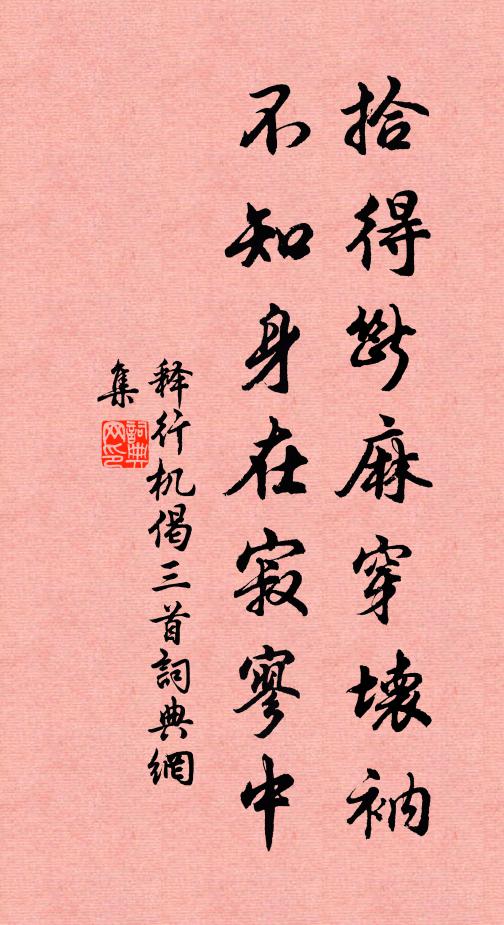 拾得斷麻穿壞衲
不知身在寂寥中
释行机偈三首詞典網
集
詞典网印